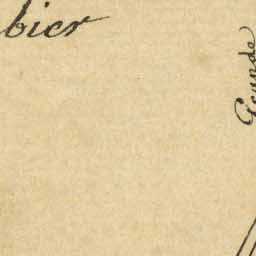 bier
Grande